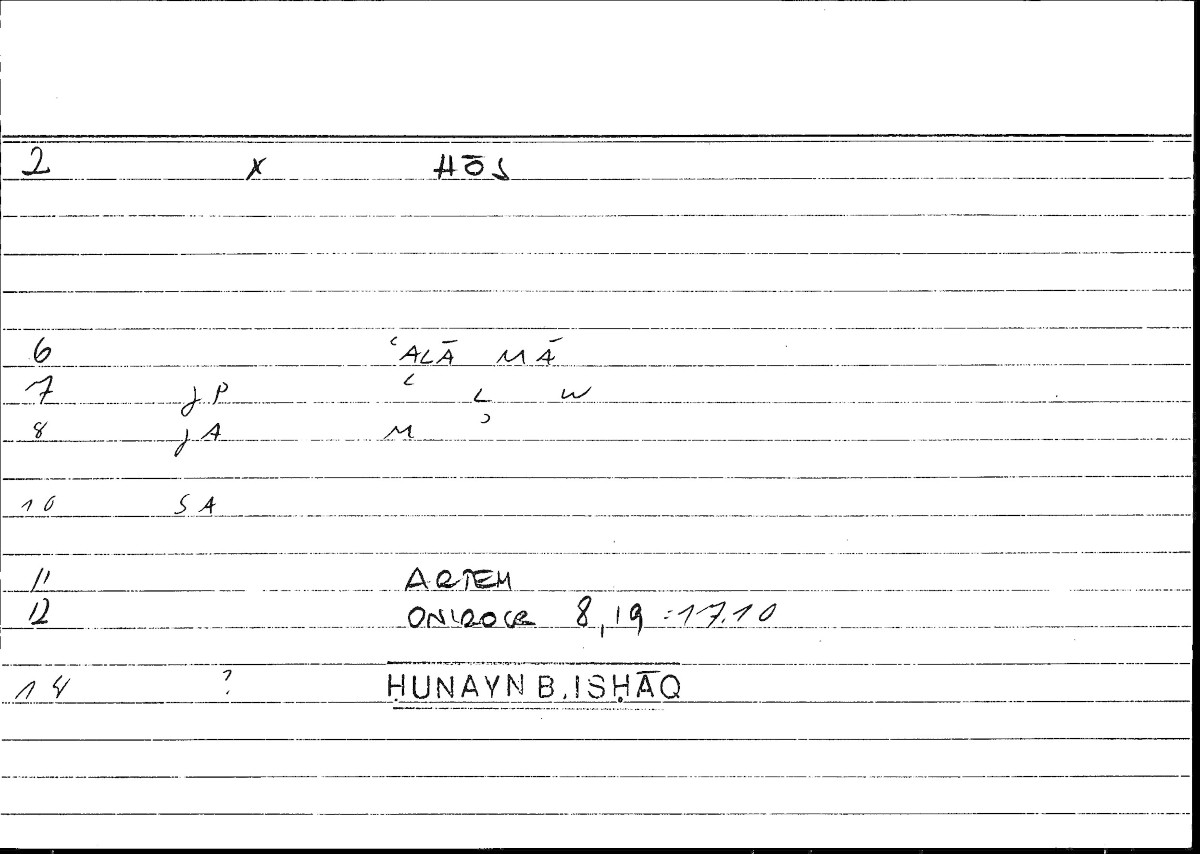 2 x HŌS
6 ʿALĀ MĀ
7 jP ʿ L W
8 jA M ʾ
10 SA
11 ARTEM
12 ONIROCR 8,19 = 17.10
14 ? ḤUNAYN B. ISḤĀQ